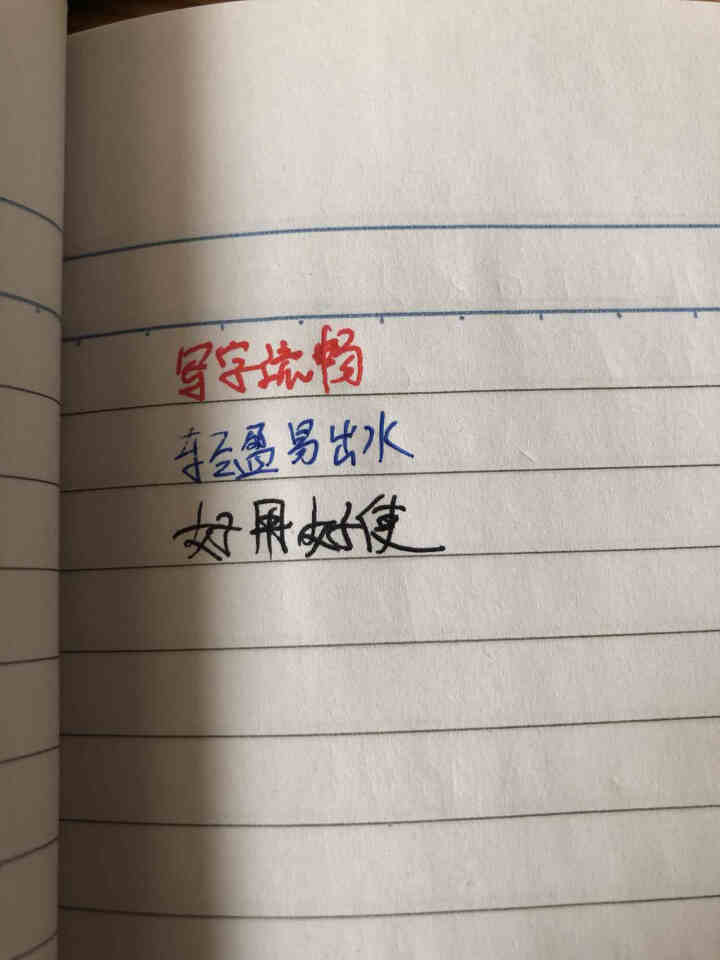 写字流畅
轻盈易出水
好用好使